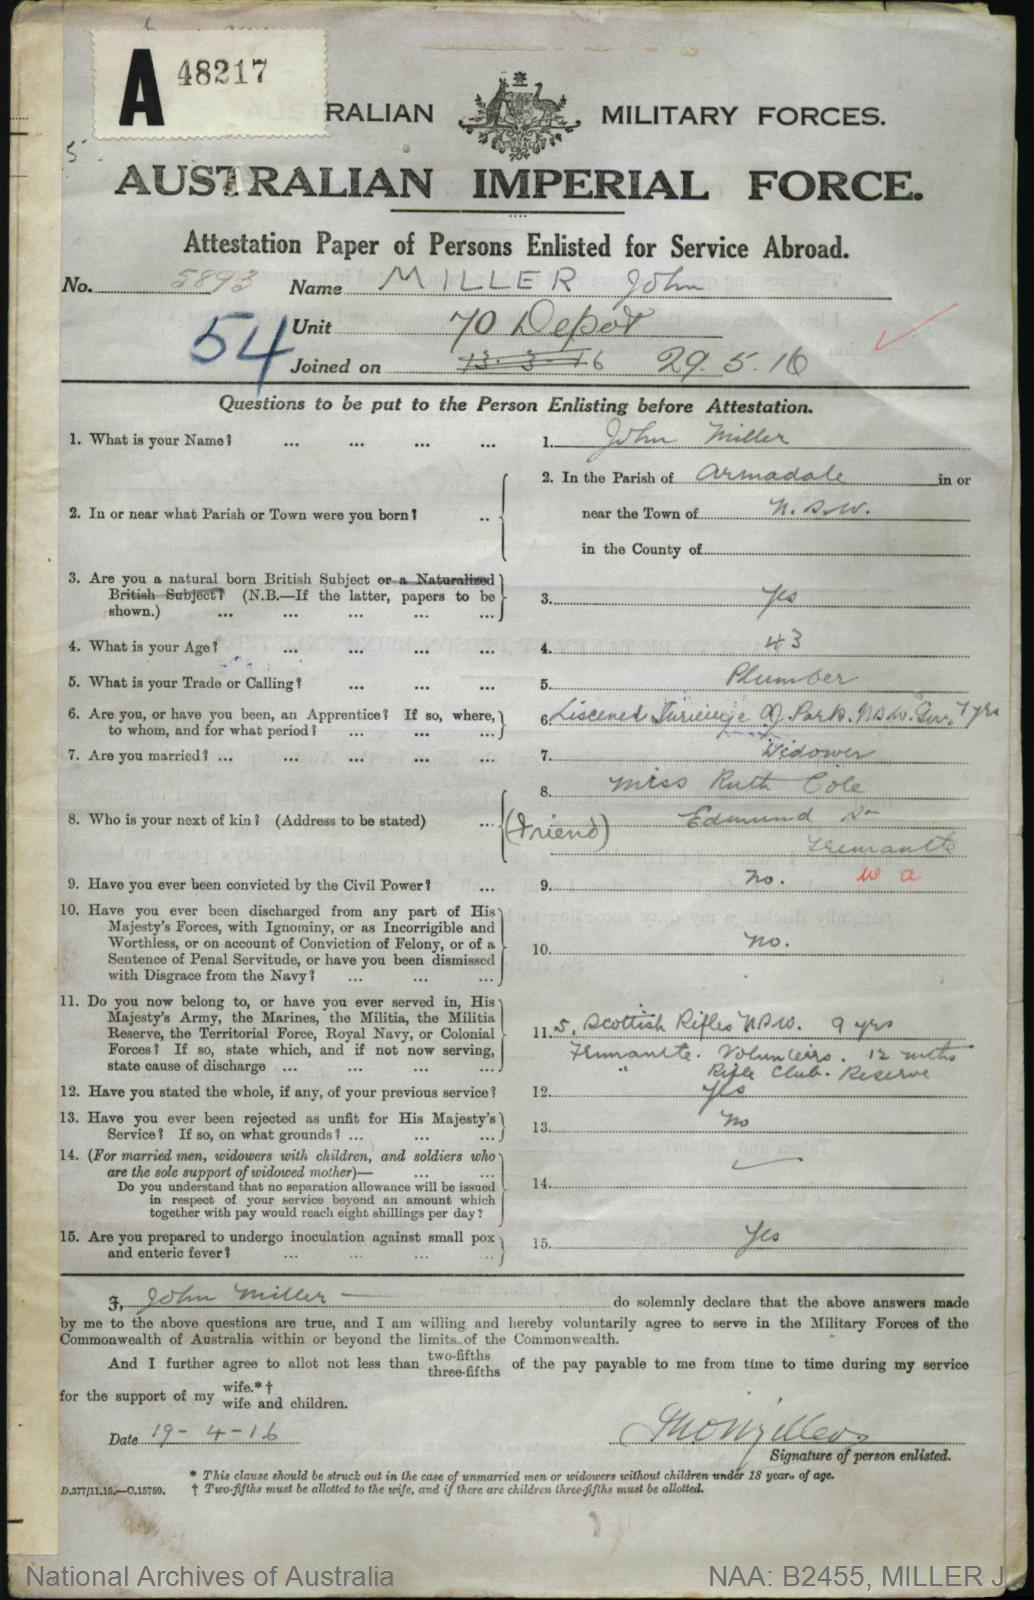 A 48217
RALIAN MILITARY FORCES.
5
AUSTRALIAN IMPERIAL FORCE.
Attestation Paper of Persons Enlisted for Service Abroad.
No. 5893 Name MILLER John
54 Unit 70 Depot
Joined on 13. 3. 16 29. 5. 16
Questions to be put to the Person Enlisting before Attestation.
1. What is your Name? ... ... ... ... 1. John Miller
2. In or near what Parish or Town were you born? .. 2. In the Parish of Armadale in or
near the Town of N.S.W.
in the County of
3. Are you a natural born British Subject or a Naturalized
British Subject? (N.B.—If the latter, papers to be
shown.) ... ... ... ... ... 3. Yes
4. What is your Age? ... ... ... ... 4. 43
5. What is your Trade or Calling? ... ... ... 5. Plumber
6. Are you, or have you been, an Apprentice? If so, where,
to whom, and for what period? ... ... ... 6. Park. N.S.W. 7 yrs
7. Are you married? ... ... ... ... ... 7. Widower
8. Who is your next of kin? (Address to be stated) ... 8. Miss Ruth Cole
(Friend) Edmund St
Fremantle
W A
9. Have you ever been convicted by the Civil Power? ... 9. No.
10. Have you ever been discharged from any part of His
Majesty's Forces, with Ignominy, or as Incorrigible and
Worthless, or on account of Conviction of Felony, or of a
Sentence of Penal Servitude, or have you been dismissed
with Disgrace from the Navy? ... ... ... 10. No.
11. Do you now belong to, or have you ever served in, His
Majesty's Army, the Marines, the Militia, the Militia
Reserve, the Territorial Force, Royal Navy, or Colonial
Forces? If so, state which, and if not now serving,
state cause of discharge ... ... ... ... 11. S. Scottish Rifles N.S.W. 9 yrs
Fremantle. Volunteers. 12 mths
" Rifle Club. Reserve
12. Have you stated the whole, if any, of your previous service? 12. Yes
13. Have you ever been rejected as unfit for His Majesty's
Service? If so, on what grounds? ... ... ... 13. No
14. (For married men, widowers with children, and soldiers who
are the sole support of widowed mother)— ... ...
Do you understand that no separation allowance will be issued
in respect of your service beyond an amount which
together with pay would reach eight shillings per day? 14.
15. Are you prepared to undergo inoculation against small pox
and enteric fever? ... ... ... ... 15. Yes
I, John Miller — do solemnly declare that the above answers made
by me to the above questions are true, and I am willing and hereby voluntarily agree to serve in the Military Forces of the
Commonwealth of Australia within or beyond the limits of the Commonwealth.
And I further agree to allot not less than two-fifths three-fifths of the pay payable to me from time to time during my service
for the support of my wife.*† wife and children.
Date 19-4-16
Signature of person enlisted.
* This clause should be struck out in the case of unmarried men or widowers without children under 18 years of age.
D.377/11.15.—C.15759. † Two-fifths must be allotted to the wife, and if there are children three-fifths must be allotted.
National Archives of Australia NAA: B2455, MILLER J